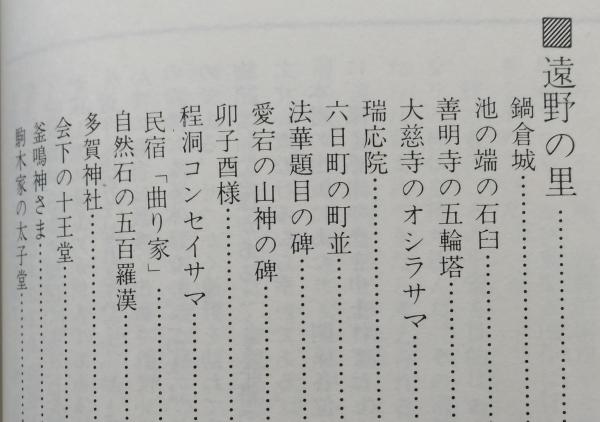 遠野の里
鍋倉城
池の端の石臼
善明寺の五輪塔
大慈寺のオシラサマ
瑞応院
六日町の町並
法華題目の碑
愛宕の山神の碑
卯子酉様
程洞コンセイサマ
民宿「曲り家」
自然石の五百羅漢
多賀神社
会下の十王堂
釜鳴神さま
駒木家の太子堂